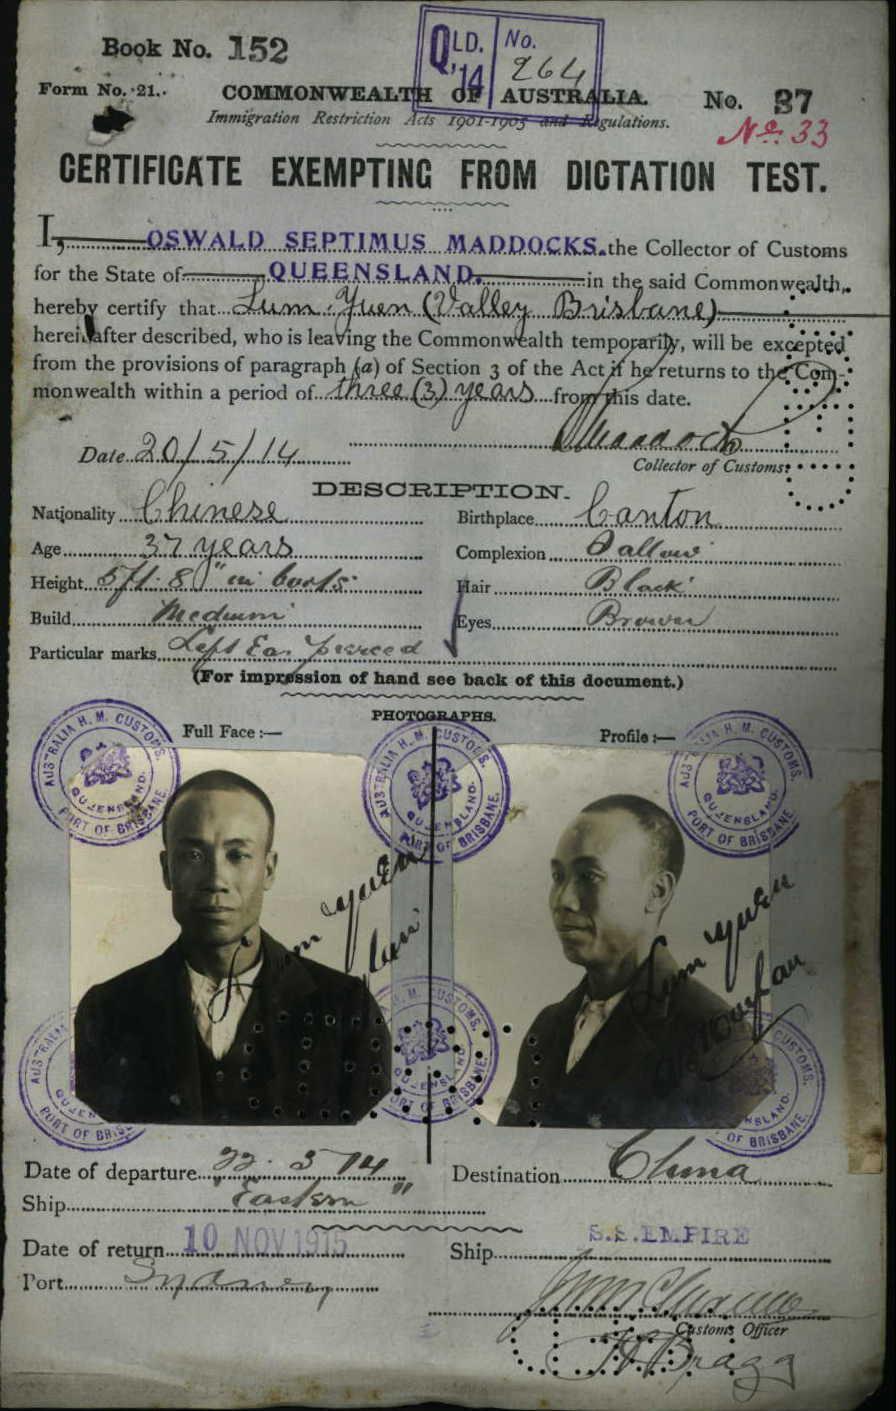 Book No. 152
QLD. '14 No. 264
Form No. 21.
COMMONWEALTH OF AUSTRALIA.
No. 37
No. 33
Immigration Restriction Acts 1901-1905 and Regulations.
CERTIFICATE EXEMPTING FROM DICTATION TEST.
I, OSWALD SEPTIMUS MADDOCKS. the Collector of Customs
for the State of QUEENSLAND. in the said Commonwealth,
hereby certify that Lum Yuen (Valley Brisbane)
hereinafter described, who is leaving the Commonwealth temporarily, will be excepted
from the provisions of paragraph (a) of Section 3 of the Act if he returns to the Com-
monwealth within a period of three (3) years from this date.
Date 20/5/14
Collector of Customs.
DESCRIPTION.
Nationality Chinese Birthplace Canton
Age 37 years Complexion Sallow
Height 5ft. 8" in boots Hair Black
Build Medium Eyes Brown
Particular marks Left Ear pierced
(For impression of hand see back of this document.)
PHOTOGRAPHS.
Full Face :— Profile :—
AUSTRALIA H. M. CUSTOMS. QUEENSLAND. PORT OF BRISBANE.
AUSTRALIA H. M. CUSTOMS. QUEENSLAND. PORT OF BRISBANE.
AUSTRALIA H. M. CUSTOMS. QUEENSLAND. PORT OF BRISBANE.
Lum Yuen
Lum Yuen
Date of departure 22. 5 14 Destination China
Ship "Eastern"
Date of return 10 NOV 1915 Ship S.S. EMPIRE
Port Sydney
Customs Officer
Bragg